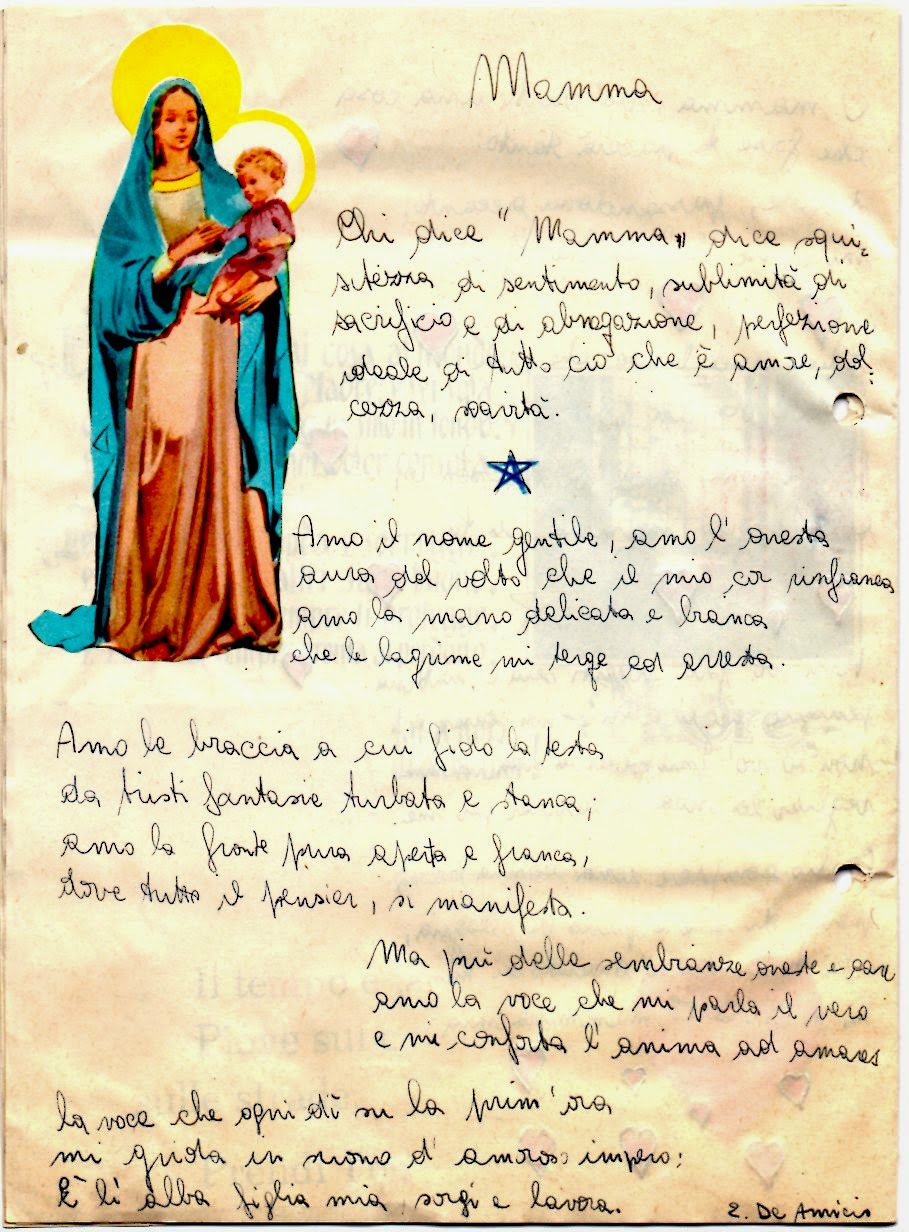 Mamma
Chi dice "Mamma" dice squi-
sitezza di sentimento, sublimità di
sacrificio e di abnegazione, perfezione
ideale di tutto ciò che è amore, dol-
cezza, soavità.
Amo il nome gentile, amo l'onesta
aura del volto che il mio cor rinfranca
amo la mano delicata e bianca
che le lagrime mi terge ed arresta.
Amo le braccia a cui fido la testa
da tristi fantasie turbata e stanca;
amo la fronte pura aperta e franca,
dove tutto il pensier, si manifesta.
Ma più delle sembianze oneste e care
amo la voce che mi parla il vero
e mi conforta l'anima ad amare
la voce che ogni dì su la prim'ora
mi grida in suono d'amoroso impero:
È lì alba figlia mia, sorgi e lavora.
E. De Amicis